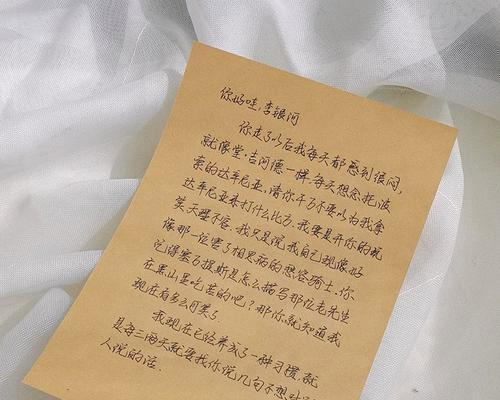 你好哇，李银河
你走了以后我每天都感到很闷，
就像堂·吉诃德一样，每天想念托波
索的达辛尼亚。请你千万不要以为我拿
达辛尼亚来打什么比方。我要是开你的玩
笑天理不容。我只是说我自己现像好
像那一位害了相思病的愁容骑士。你
记得塞万提斯是怎么描写那位老先生
在黑山里吃苦的吧？那你就知道我
现在有多么可笑了。
我现在已经养成了一种习惯，就
是每三两天就要找你说几句不想对别
人说的话。